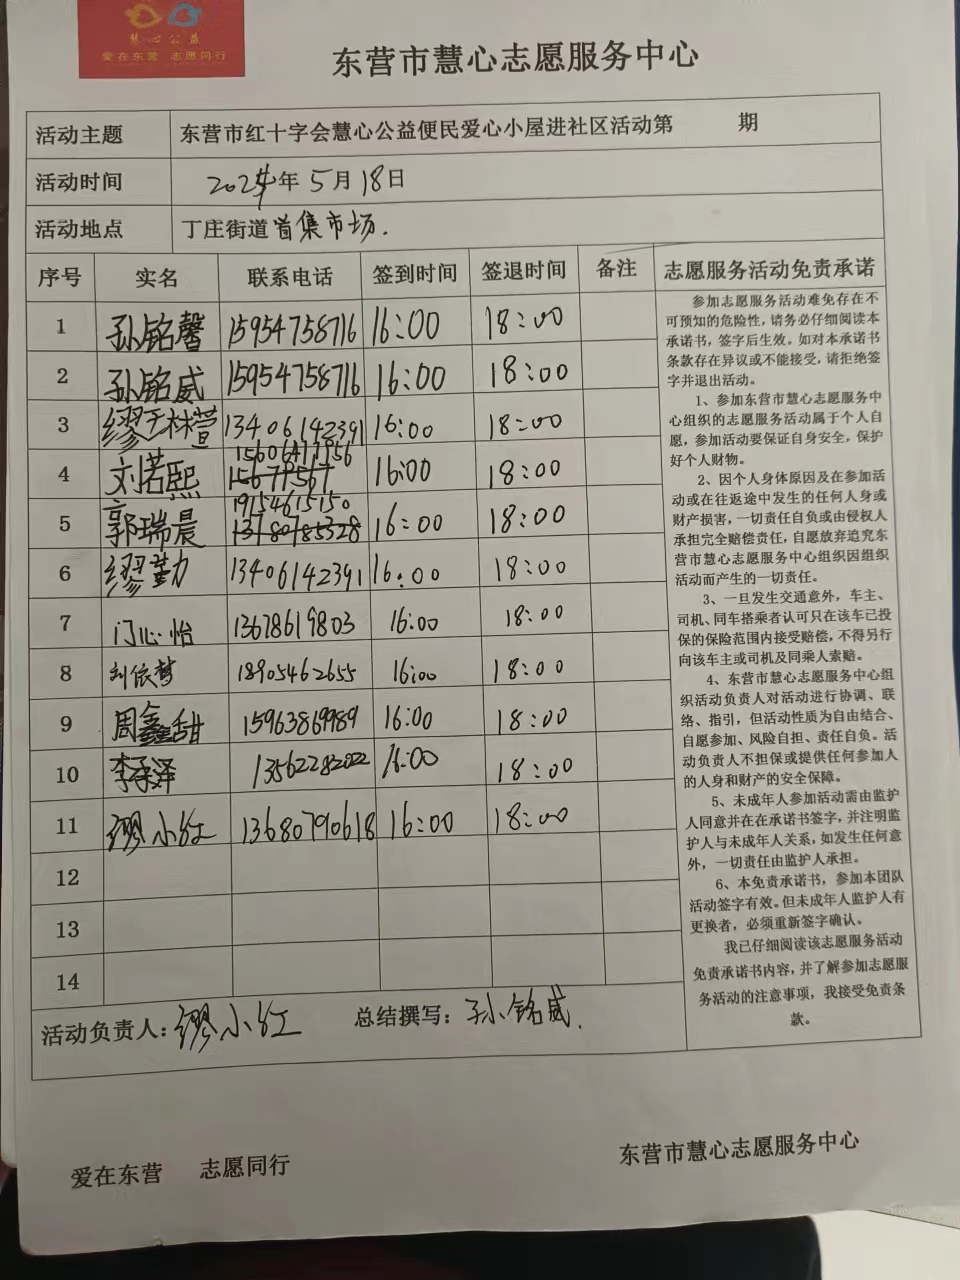 慧心公益
爱在东营 志愿同行
东营市慧心志愿服务中心
活动主题 东营市红十字会慧心公益便民爱心小屋进社区活动第 期
活动时间 2024年5月18日
活动地点 丁庄街道首集市场.
序号 实名 联系电话 签到时间 签退时间 备注 志愿服务活动免责承诺
1 孙铭馨 15954758716 16:00 18:00
2 孙铭威 15954758716 16:00 18:00
3 缪于林萱 13406142391 16:00 18:00
4 刘若熙 16:00 18:00
5 郭瑞晨 19154615150 13780785328 16:00 18:00
6 缪勤 13406142391 16:00 18:00
7 门心怡 13678619803 16:00 18:00
8 刘依梦 18905462655 16:00 18:00
9 周鑫甜 15963869989 16:00 18:00
10 李承泽 13562282022 16:00 18:00
11 缪小红 13680790618 16:00 18:00
12
13
14
参加志愿服务活动难免存在不
可预知的危险性，请务必仔细阅读本
承诺书，签字后生效。如对本承诺书
条款存在异议或不能接受，请拒绝签
字并退出活动。
1、参加东营市慧心志愿服务中
心组织的志愿服务活动属于个人自
愿，参加活动要保证自身安全，保护
好个人财物。
2、因个人身体原因及在参加活
动或在往返途中发生的任何人身或
财产损害，一切责任自负或由侵权人
承担完全赔偿责任，自愿放弃追究东
营市慧心志愿服务中心组织因组织
活动而产生的一切责任。
3、一旦发生交通意外，车主、
司机、同车搭乘者认可只在该车已投
保的保险范围内接受赔偿，不得另行
向该车主或司机及同乘人索赔。
4、东营市慧心志愿服务中心组
织活动负责人对活动进行协调、联
络、指引，但活动性质为自由结合、
自愿参加、风险自担、责任自负。活
动负责人不担保或提供任何参加人
的人身和财产的安全保障。
5、未成年人参加活动需由监护
人同意并在在承诺书签字，并注明监
护人与未成年人关系，如发生任何意
外，一切责任由监护人承担。
6、本免责承诺书，参加本团队
活动签字有效。但未成年人监护人有
更换者，必须重新签字确认。
我已仔细阅读该志愿服务活动
免责承诺书内容，并了解参加志愿服
务活动的注意事项，我接受免责条
款。
活动负责人：缪小红 总结撰写：孙铭威.
爱在东营 志愿同行 东营市慧心志愿服务中心